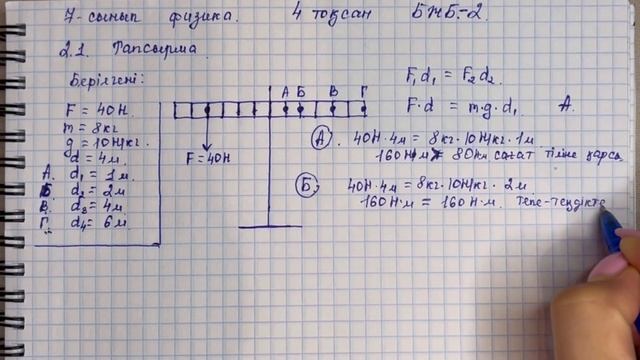 7-сынып физика. 4 тоқсан БЖБ-2
2.1. Тапсырма
Берілгені:
F = 40Н.
m = 8кг
g = 10Н/кг
d = 4м.
А. d₁ = 1м.
Б. d₂ = 2м
В. d₃ = 4м
Г. d₄ = 6м
А Б В Г
F = 40Н
F₁d₁ = F₂d₂
F·d = m·g·d₁ А.
А. 40Н·4м = 8кг·10Н/кг·1м
160Н·м ≠ 80Нм сағат тіліне қарсы
Б. 40Н·4м = 8кг·10Н/кг·2м
160Н·м = 160Н·м. Тепе-теңдікте